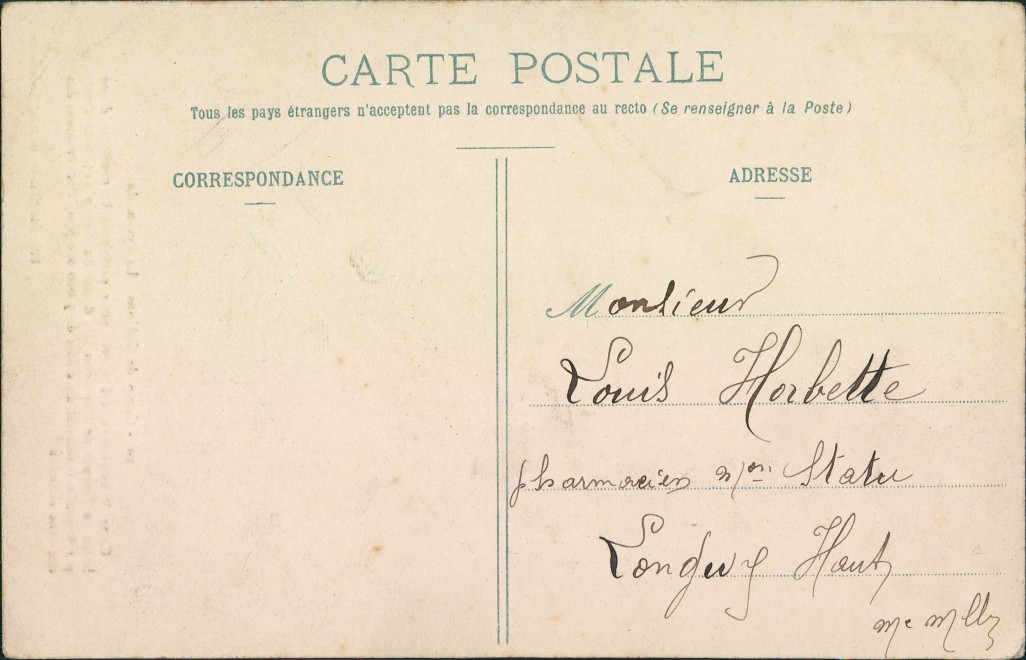 CARTE POSTALE
Tous les pays étrangers n'acceptent pas la correspondance au recto (Se renseigner à la Poste)
CORRESPONDANCE
ADRESSE
Monsieur
Louis Horbette
pharmacien mon Statu
Longwy Haut